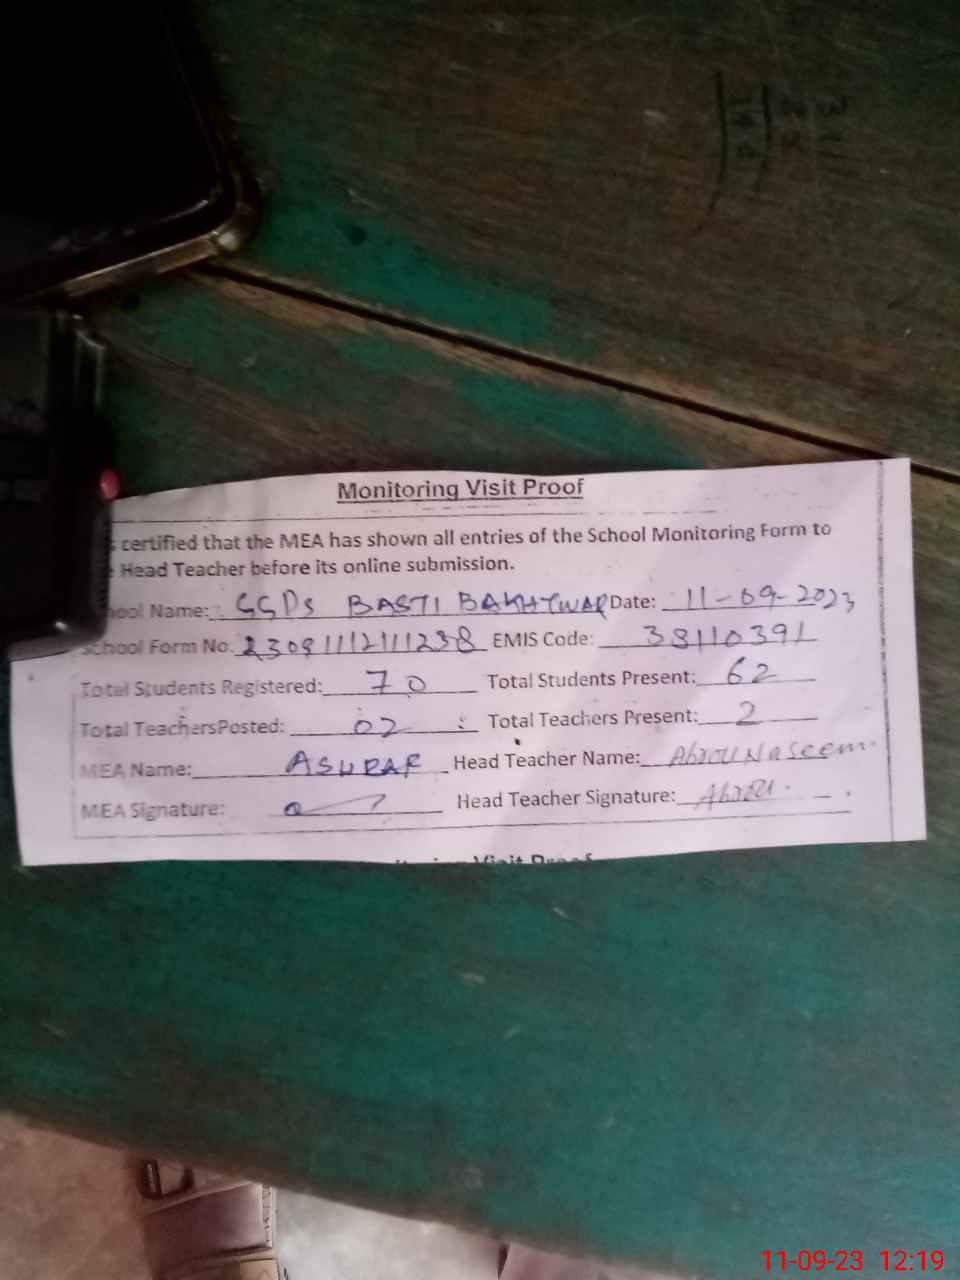 Monitoring Visit Proof
certified that the MEA has shown all entries of the School Monitoring Form to
Head Teacher before its online submission.
hool Name: GGPS BASTI BAKHTWAR Date: 11-09-2023
School Form No. 2309111211238 EMIS Code: 38110391
Total Students Registered: 70 Total Students Present: 62
Total TeachersPosted: 02 Total Teachers Present: 2
MEA Name: ASHRAF Head Teacher Name: Abroo Naseem
MEA Signature: Head Teacher Signature:
Visit Proof
11-09-23 12:19